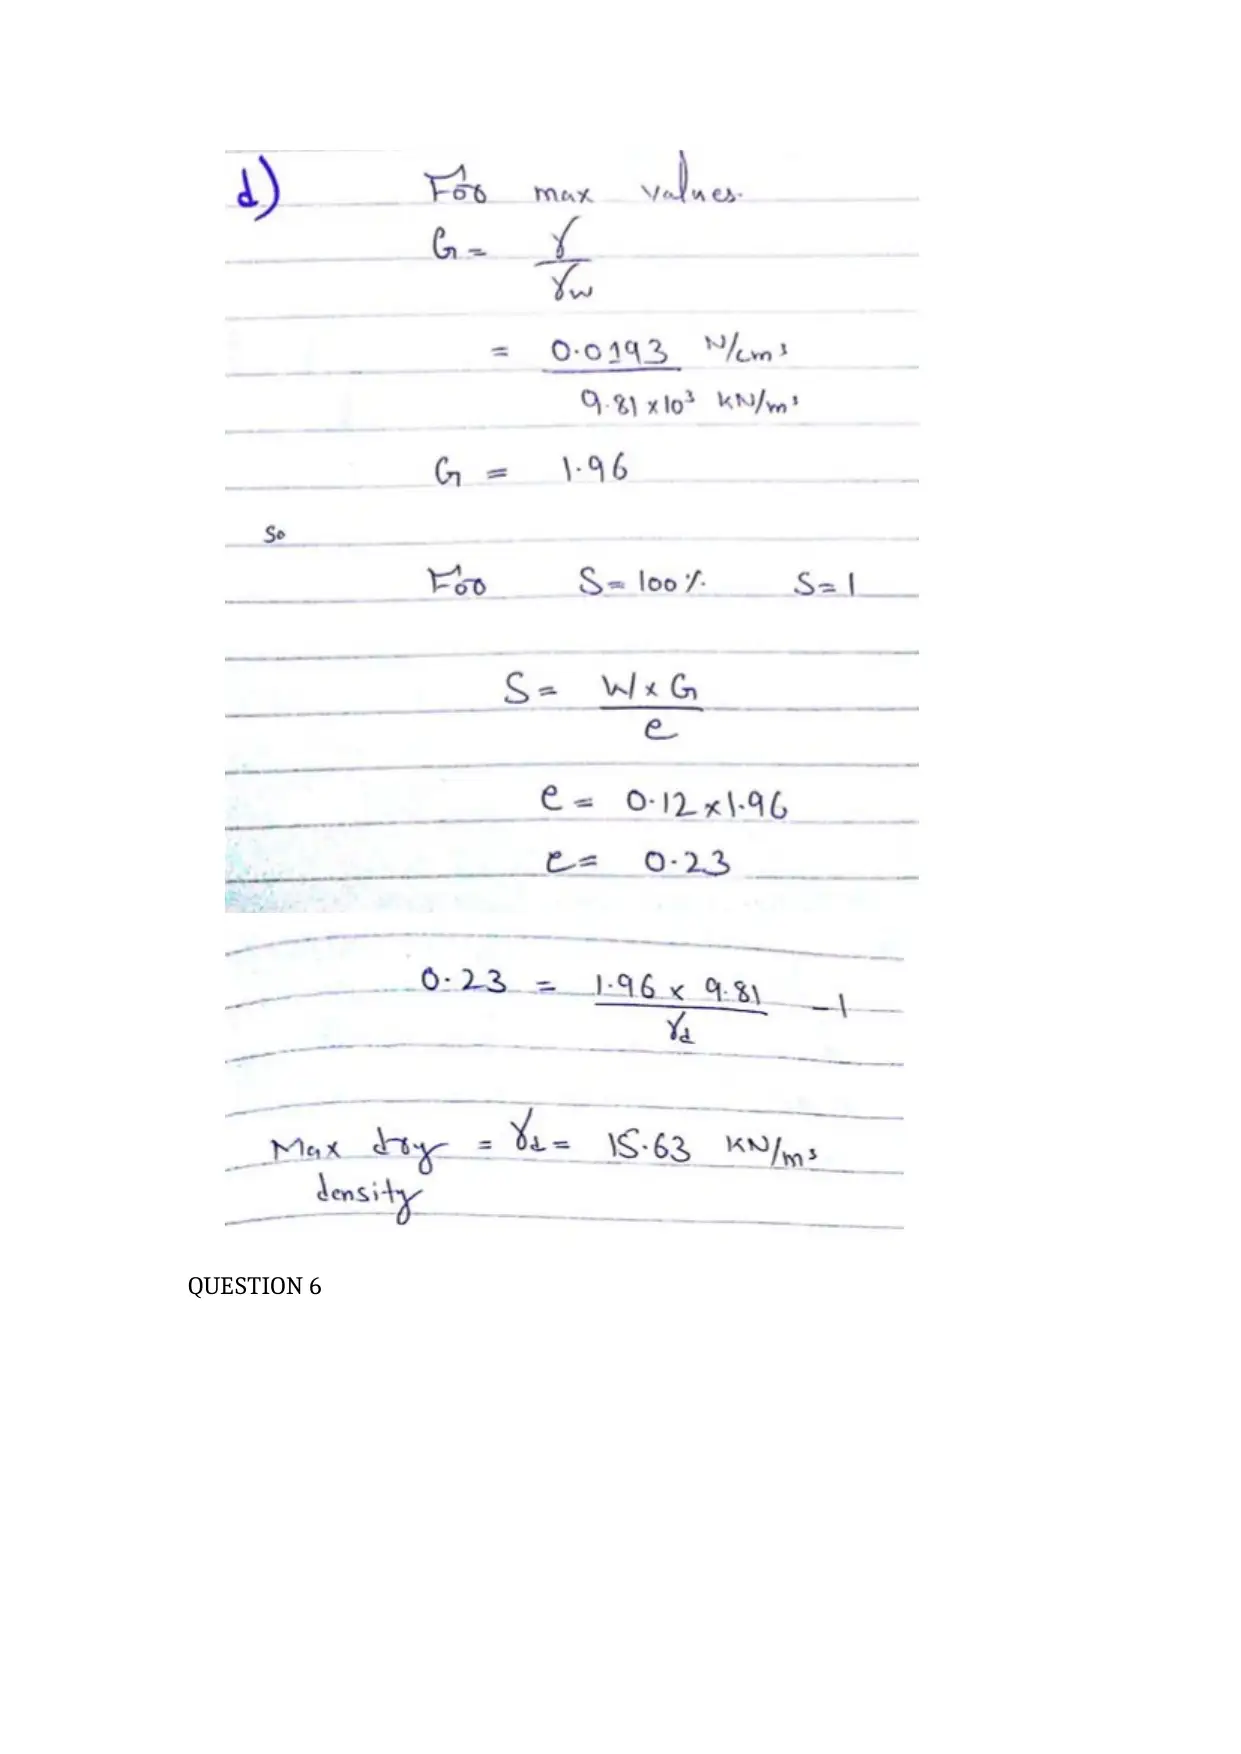 d) For max values.
G = γ
γw
= 0.0193 N/cm³
9.81 x 10³ KN/m³
G = 1.96
So
For S = 100 % S = 1
S = W x G
e
e = 0.12 x 1.96
e = 0.23
0.23 = 1.96 x 9.81 - 1
γd
Max dry = γd = 15.63 KN/m³
density
QUESTION 6